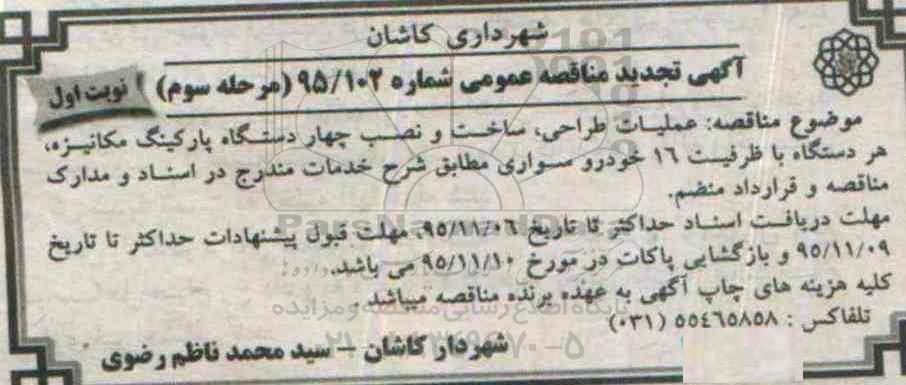 شهرداری کاشان
آگهی تجدید مناقصه عمومی شماره ۹۵/۱۰۲ (مرحله سوم)
نوبت اول
موضوع مناقصه: عملیات طراحی، ساخت و نصب چهار دستگاه پارکینگ مکانیزه،
هر دستگاه با ظرفیت ۱۶ خودرو سواری مطابق شرح خدمات مندرج در اسناد و مدارک
مناقصه و قرارداد منضم.
مهلت دریافت اسناد حداکثر تا تاریخ ۹۵/۱۱/۰۶، مهلت قبول پیشنهادات حداکثر تا تاریخ
۹۵/۱۱/۰۹ و بازگشایی پاکات در مورخ ۹۵/۱۱/۱۰ می باشد.
کلیه هزینه های چاپ آگهی به عهده برنده مناقصه میباشد.
تلفاکس : ۵۵٤٦۵۸۵۸ (۰۳۱)
شهردار کاشان – سید محمد ناظم رضوی
پایگاه اطلاع رسانی مناقصه و مزایده